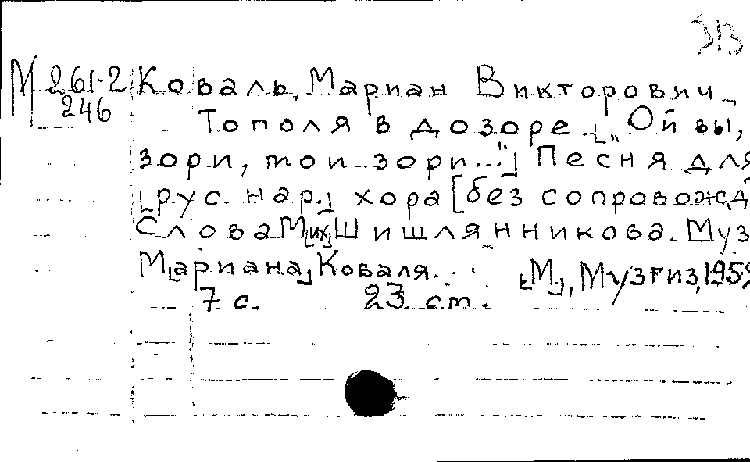 313
М 261-2 Коваль, Мариан Викторович
246 Тополя в дозоре. [„Ой вы,
зори, мои зори..."] Песня для
[рус. нар.] хора [без сопровожд
Слова М[их] Шишлянникова. Муз
М[ариана] Коваля. [М.], Музгиз, 195
7 с. 23 см.